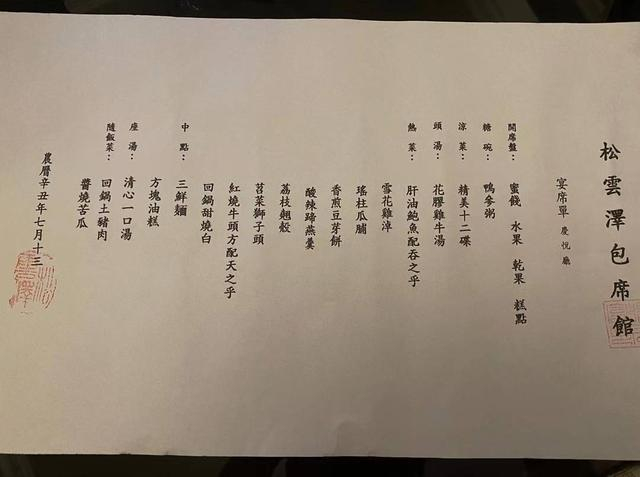 松雲澤包席館
宴席單 慶悅廳
開席盤： 蜜餞 水果 乾果 糕點
糖碗： 鴨參粥
涼菜： 精美十二碟
頭湯： 花膠雞牛湯
熱菜： 肝油鮑魚配吞之乎
雪花雞淖
瑤柱瓜脯
香煎豆芽餅
酸辣蹄燕羹
荔枝翹殼
苕菜獅子頭
紅燒牛頭方配夭之乎
回鍋甜燒白
中點： 三鮮麵
方塊油糕
座湯： 清心一口湯
隨飯菜： 回鍋土豬肉
醬燒苦瓜
農曆辛丑年七月十三